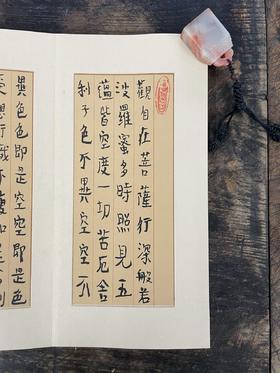 觀自在菩薩行深般若
波羅蜜多時照見五
蘊皆空度一切苦厄舍
利子色不異空空不
異色色即是空空即是色